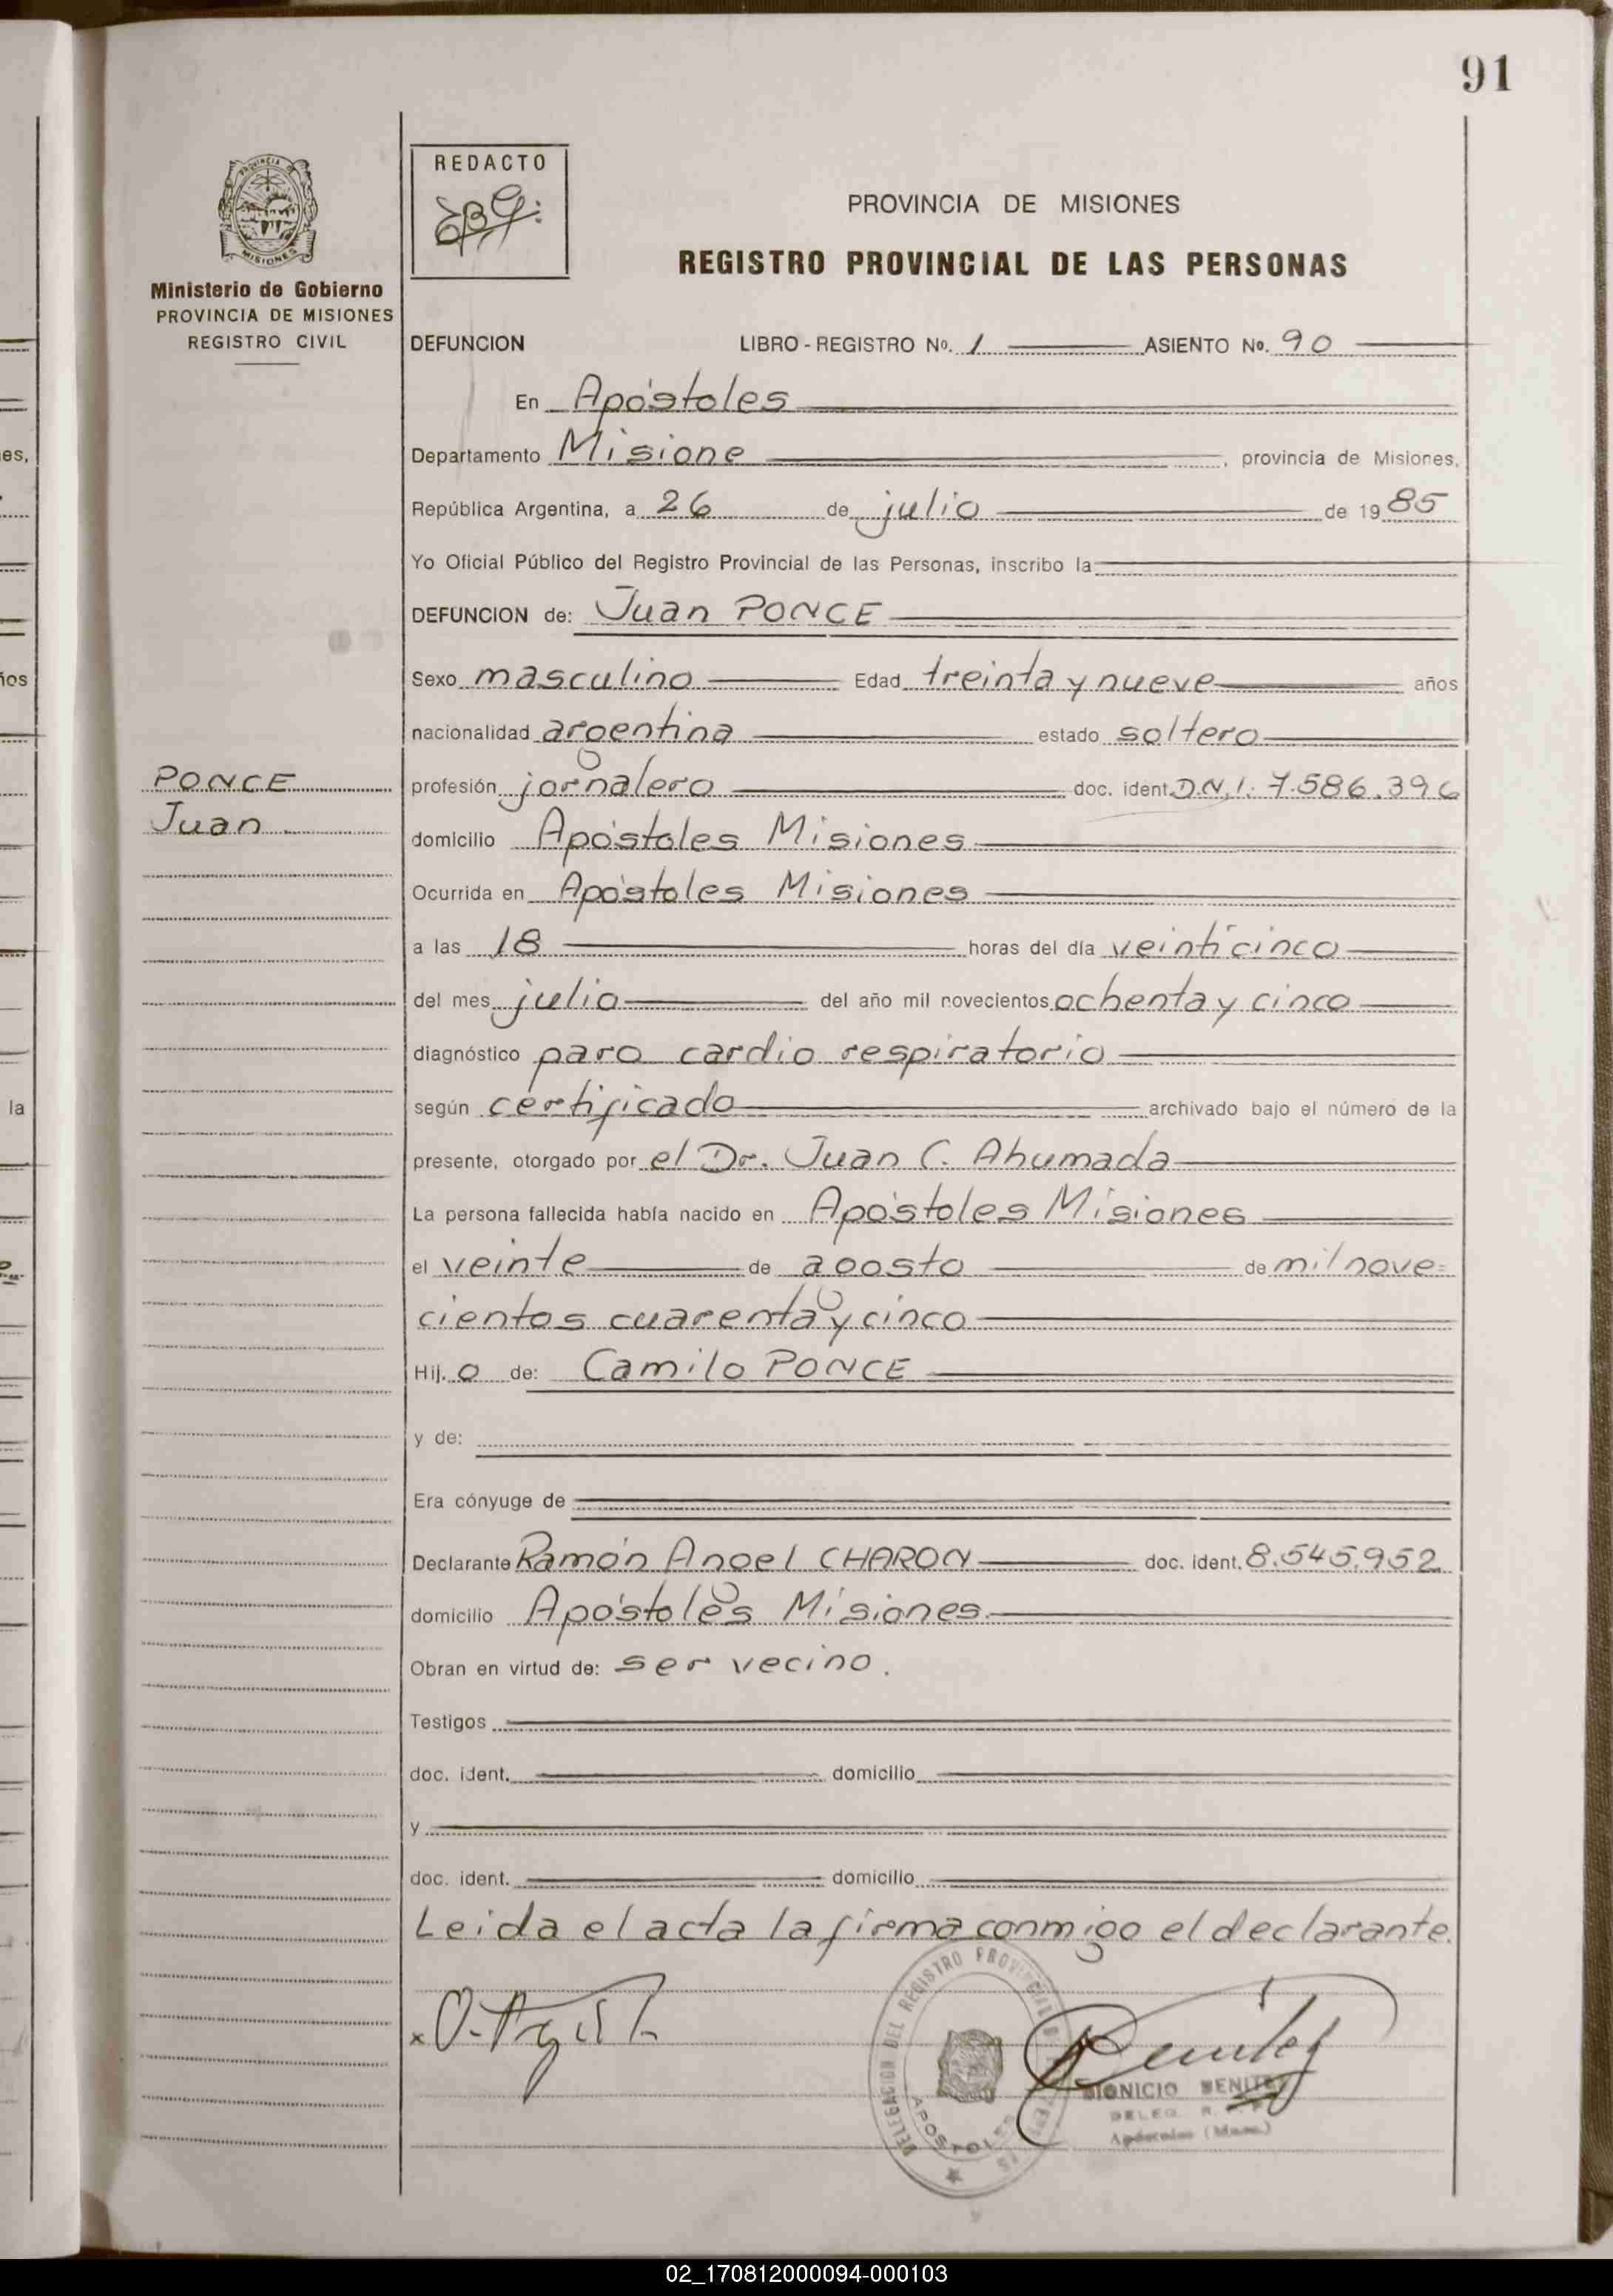 91
REDACTO
PROVINCIA DE MISIONES
REGISTRO PROVINCIAL DE LAS PERSONAS
PROVINCIA DE
MISIONES
Ministerio de Gobierno
PROVINCIA DE MISIONES
REGISTRO CIVIL
DEFUNCION LIBRO - REGISTRO Nº. 1 ASIENTO Nº. 90
En Apóstoles
Departamento Misione, provincia de Misiones,
República Argentina, a 26 de julio de 1985
Yo Oficial Público del Registro Provincial de las Personas, inscribo la
DEFUNCION de: Juan PONCE
Sexo masculino Edad treinta y nueve años
nacionalidad argentina estado soltero
PONCE
Juan
profesión jornalero doc. ident. D.N.I. 7.586.396
domicilio Apóstoles Misiones
Ocurrida en Apóstoles Misiones
a las 18 horas del día veinticinco
del mes julio del año mil novecientos ochenta y cinco
diagnóstico paro cardio respiratorio
según certificado archivado bajo el número de la
presente, otorgado por el Dr. Juan C. Ahumada
La persona fallecida había nacido en Apóstoles Misiones
el veinte de agosto de mil nove=
cientos cuarenta y cinco
Hij.o de: Camilo PONCE
y de:
Era cónyuge de
Declarante Ramón Angel CHARON doc. ident. 8.545.952
domicilio Apóstoles Misiones
Obran en virtud de: ser vecino.
Testigos
doc. ident. domicilio
y
doc. ident. domicilio
Leida el acta la firma conmigo el declarante.
DELEGACION DEL REGISTRO PROVINCIAL DE LAS PERSONAS
APOSTOLES
DIONICIO BENITEZ
DELEG. R.
Apóstoles (Mnes.)
es,
ños
la
02_170812000094-000103